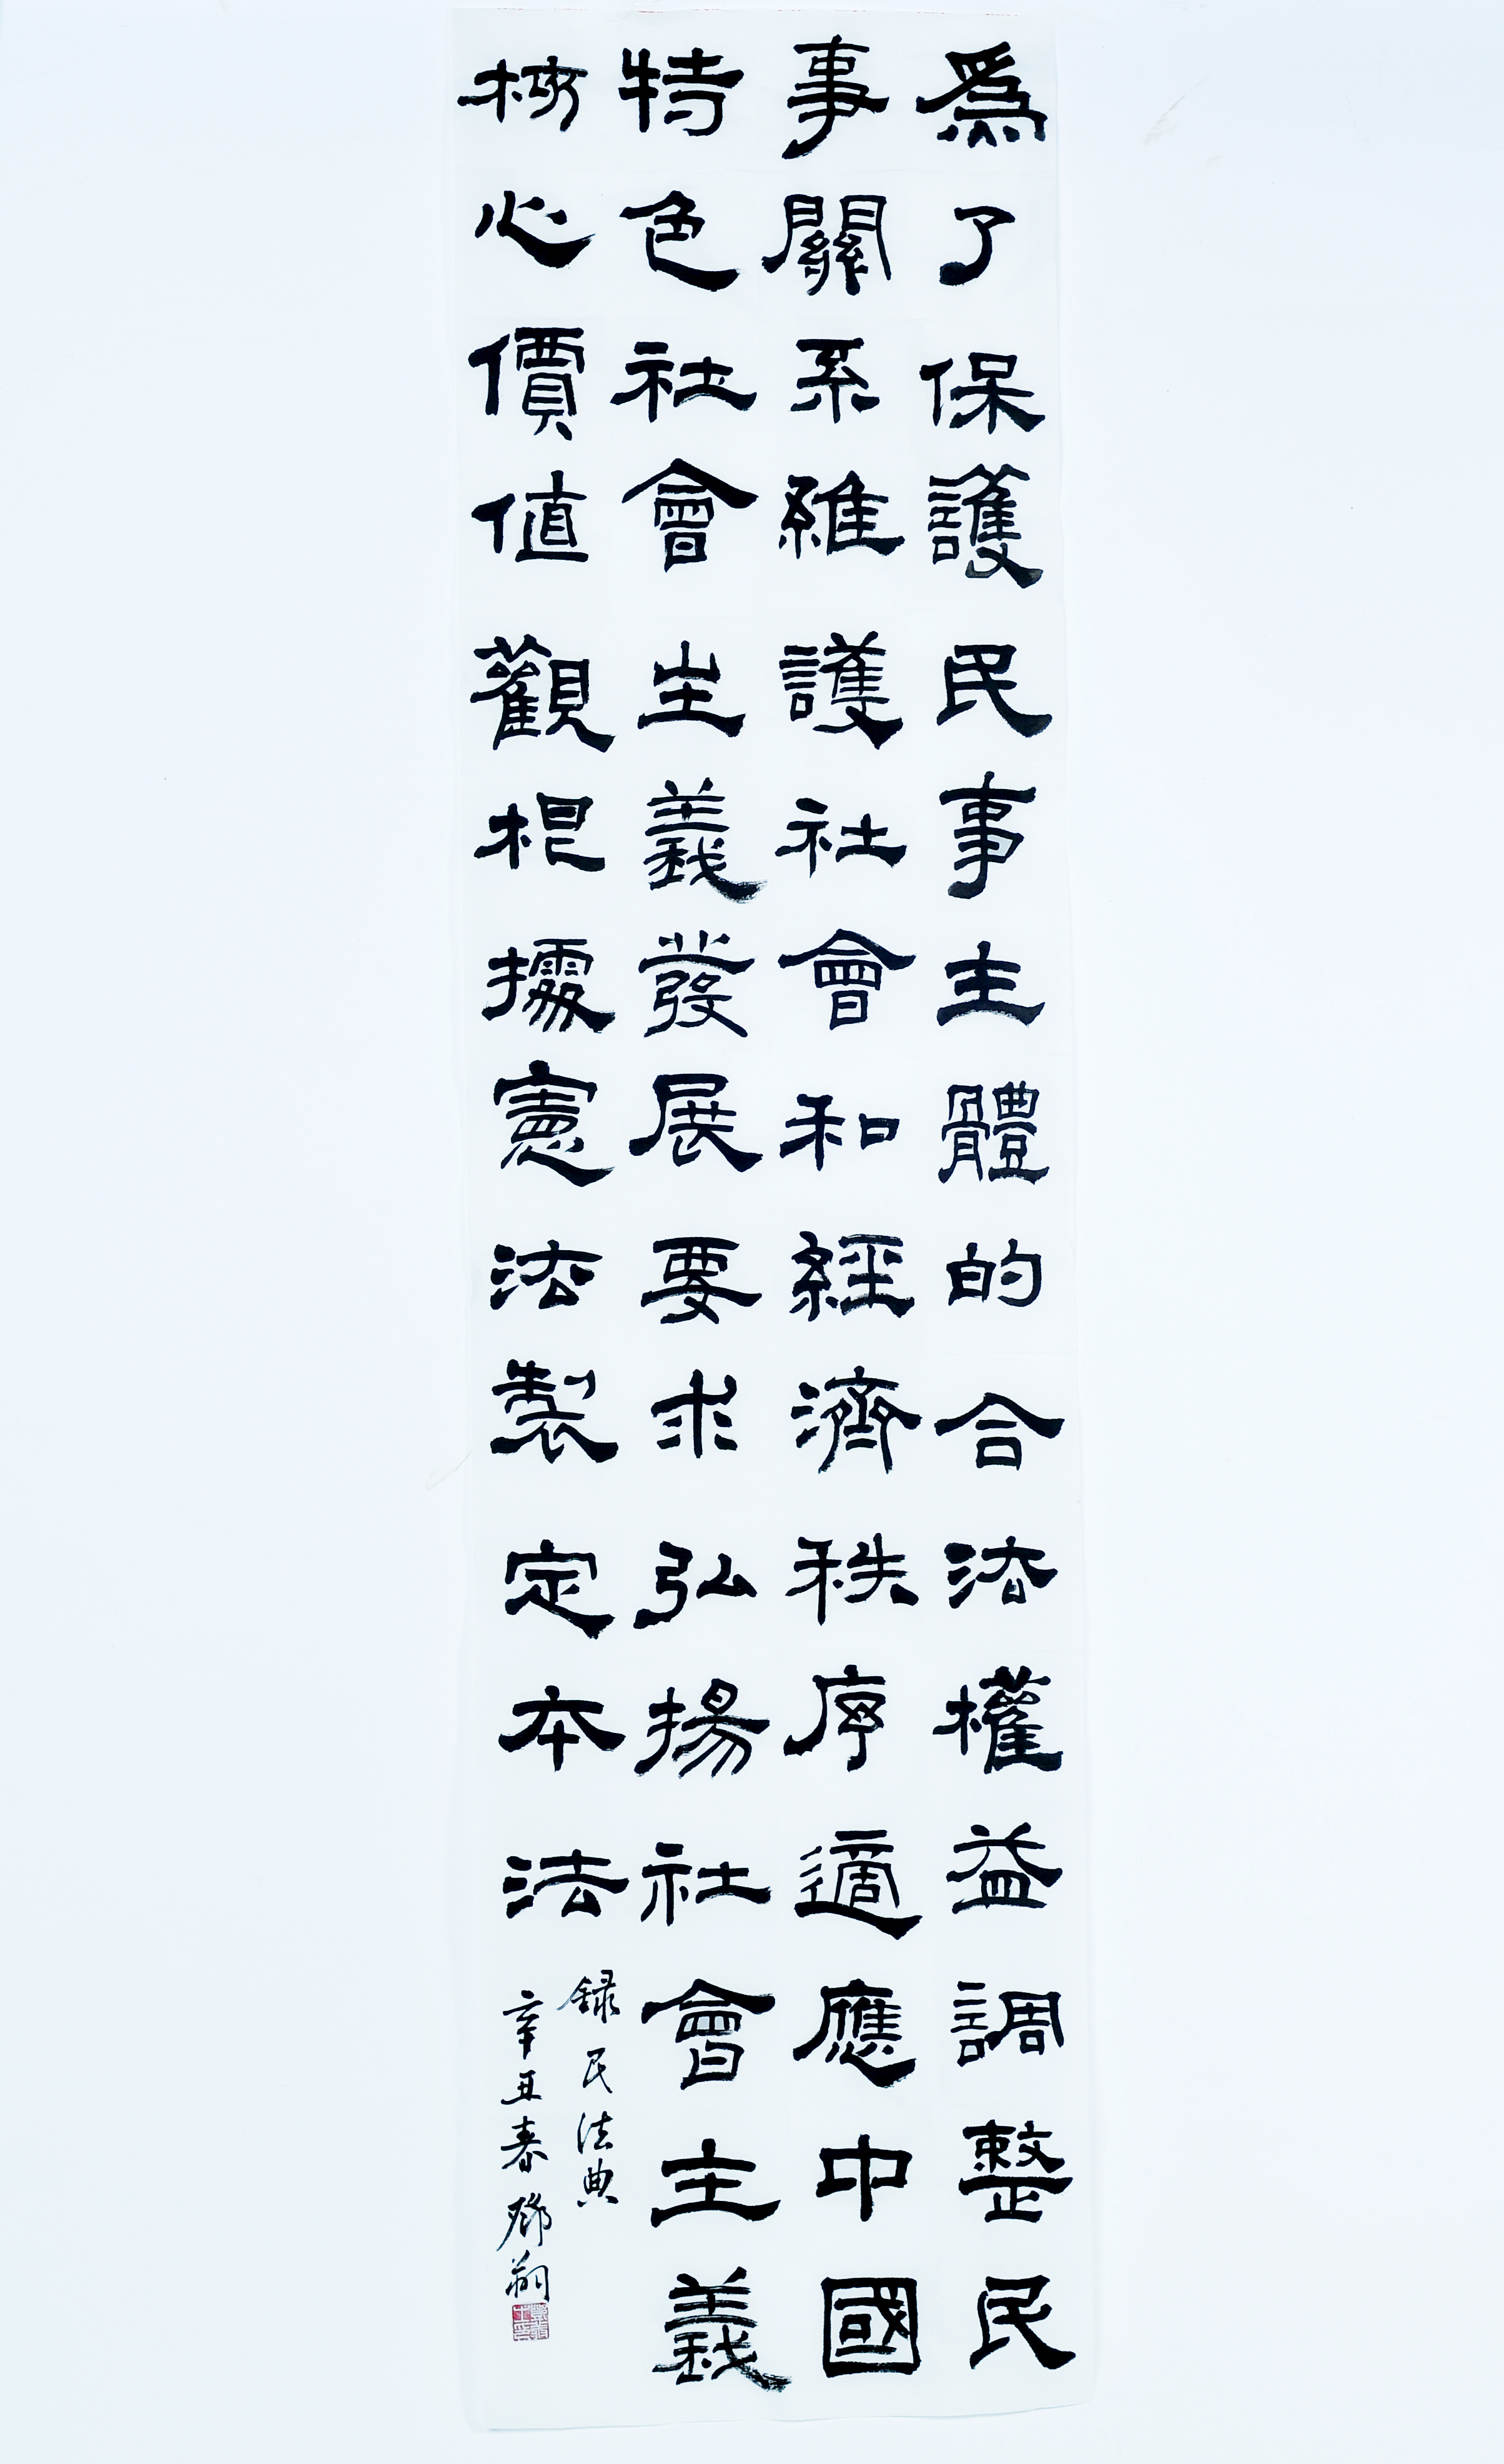 爲了保護民事主體的合法權益調整民
事關系維護社會和經濟秩序適應中國
特色社會主義發展要求弘揚社會主義
核心價值觀根據憲法製定本法
録民法典
辛丑春